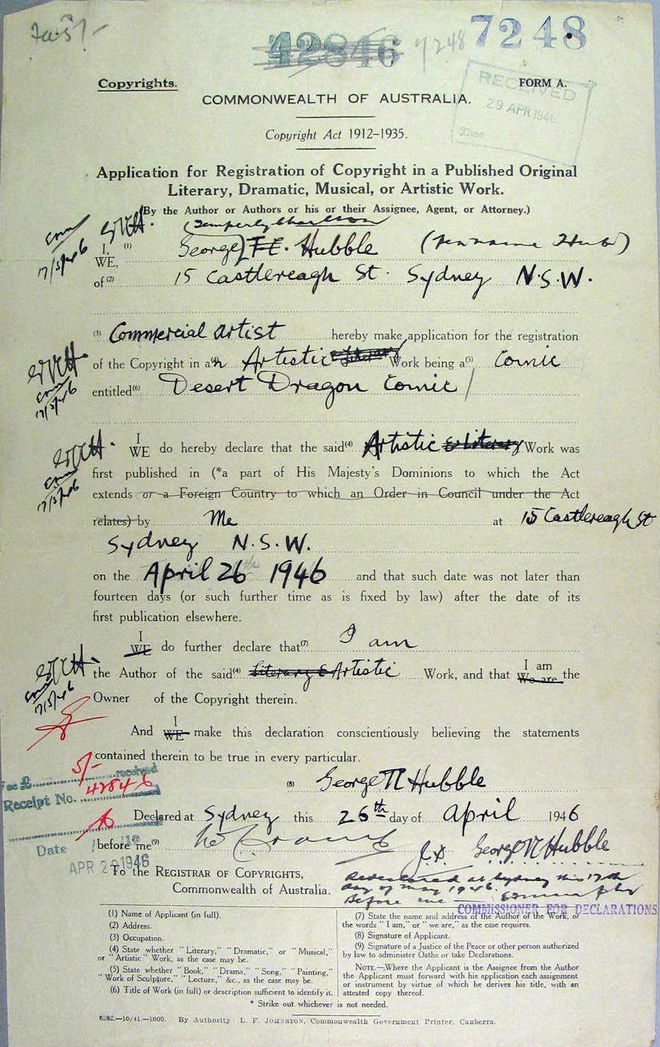 42846 7248 7248
Copyrights. FORM A.
RECEIVED
29 APR 1946
COMMONWEALTH OF AUSTRALIA.
Copyright Act 1912–1935.
Application for Registration of Copyright in a Published Original
Literary, Dramatic, Musical, or Artistic Work.
(By the Author or Authors or his or their Assignee, Agent, or Attorney.)
I, WE, (1) George Hubble
of (2) 15 Castlereagh St. Sydney N.S.W.
17/5/46
(3) Commercial artist hereby make application for the registration
of the Copyright in a n Artistic & Literary Work being a (5) Comic
entitled (6) Desert Dragon Comic
17/5/46
I
WE do hereby declare that the said (4) Artistic & Literary Work was
first published in (*a part of His Majesty's Dominions to which the Act
extends or a Foreign Country to which an Order in Council under the Act
relates) by Me at 15 Castlereagh St
Sydney N.S.W.
17/5/46
on the April 26th 1946 and that such date was not later than
fourteen days (or such further time as is fixed by law) after the date of its
first publication elsewhere.
I
WE do further declare that (7) I am
the Author of the said (4) Literary & Artistic Work, and that I am We are the
Owner of the Copyright therein.
17/5/46
And I WE make this declaration conscientiously believing the statements
contained therein to be true in every particular.
Fee £ 5/- received
Receipt No. 42846
(8) George N Hubble
Declared at Sydney this 26th day of April 1946
before me (9) J.P. George N Hubble
Date APR 29 1946
To the REGISTRAR OF COPYRIGHTS,
Commonwealth of Australia.
Redeclared at Sydney this 17th
day of May 1946.
Before me
COMMISSIONER FOR DECLARATIONS
(1) Name of Applicant (in full).
(2) Address.
(3) Occupation.
(4) State whether "Literary," "Dramatic," or "Musical,"
or "Artistic" Work, as the case may be.
(5) State whether "Book," "Drama," "Song," "Painting,"
"Work of Sculpture," "Lecture," &c., as the case may be.
(6) Title of Work (in full) or description sufficient to identify it.
(7) State the name and address of the Author of the Work, or
the words "I am," or "we are," as the case requires.
(8) Signature of Applicant.
(9) Signature of a Justice of the Peace or other person authorized
by law to administer Oaths or take Declarations.
NOTE.—Where the Applicant is the Assignee from the Author
the Applicant must forward with his application each assignment
or instrument by virtue of which he derives his title, with an
attested copy thereof.
* Strike out whichever is not needed.
6382.—10/41.—1000. By Authority: L. F. JOHNSTON, Commonwealth Government Printer, Canberra.